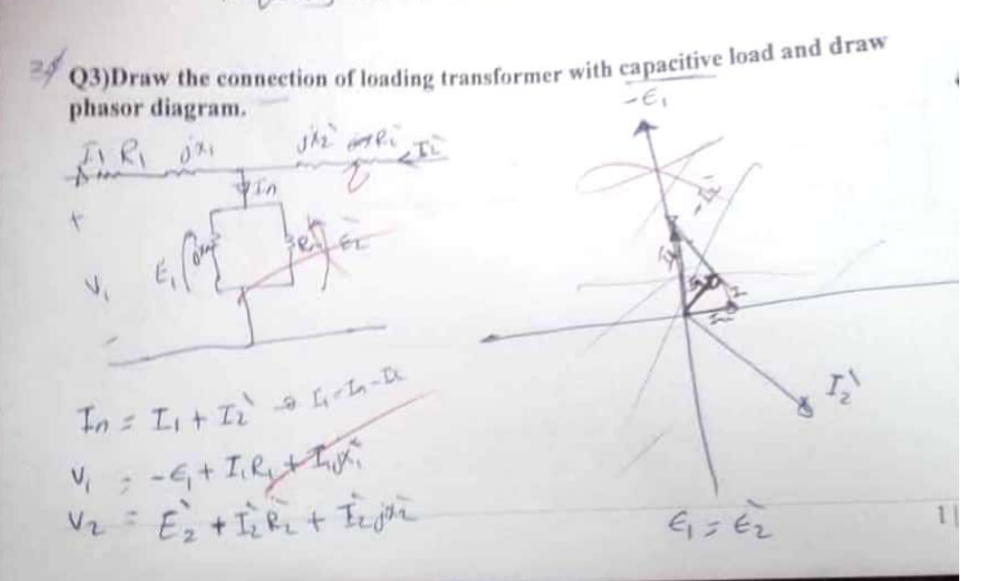 Q3)Draw the connection of loading transformer with capacitive load and draw
phasor diagram.
-E₁
I₁ R₁ jx₁ jx₂` R₂` I₂`
+ In
E₁ E₂`
V₁
-
I₂`
In = I₁ + I₂` → I₁ = In - I₂`
V₁ = -E₁ + I₁R₁ + I₁jx₁
V₂` = E₂` + I₂`R₂` + I₂`jx₂`
E₁ = E₂`